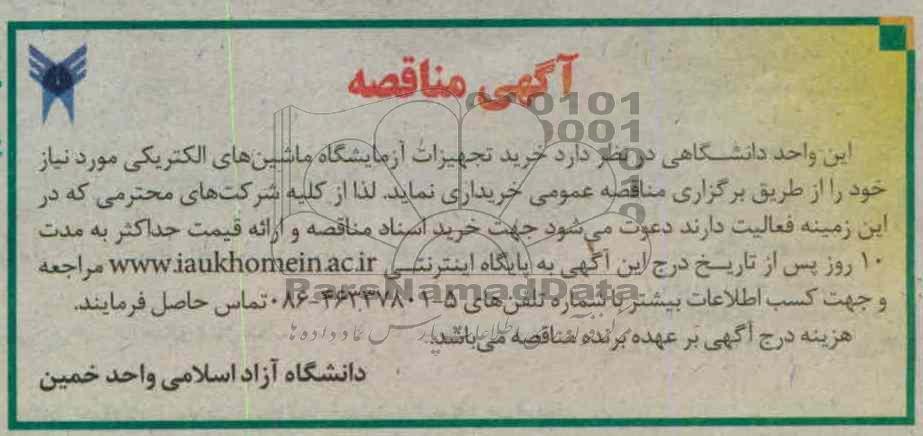 آگهی مناقصه
این واحد دانشگاهی در نظر دارد خرید تجهیزات آزمایشگاه ماشین‌های الکتریکی مورد نیاز
خود را از طریق برگزاری مناقصه عمومی خریداری نماید. لذا از کلیه شرکت‌های محترمی که در
این زمینه فعالیت دارند دعوت می‌شود جهت خرید اسناد مناقصه و ارائه قیمت حداکثر به مدت
۱۰ روز پس از تاریخ درج این آگهی به پایگاه اینترنتی www.iaukhomein.ac.ir مراجعه
و جهت کسب اطلاعات بیشتر با شماره تلفن‌های تماس حاصل فرمایند.
هزینه درج آگهی بر عهده برنده مناقصه می‌باشد.
دانشگاه آزاد اسلامی واحد خمین
ParsNamadData